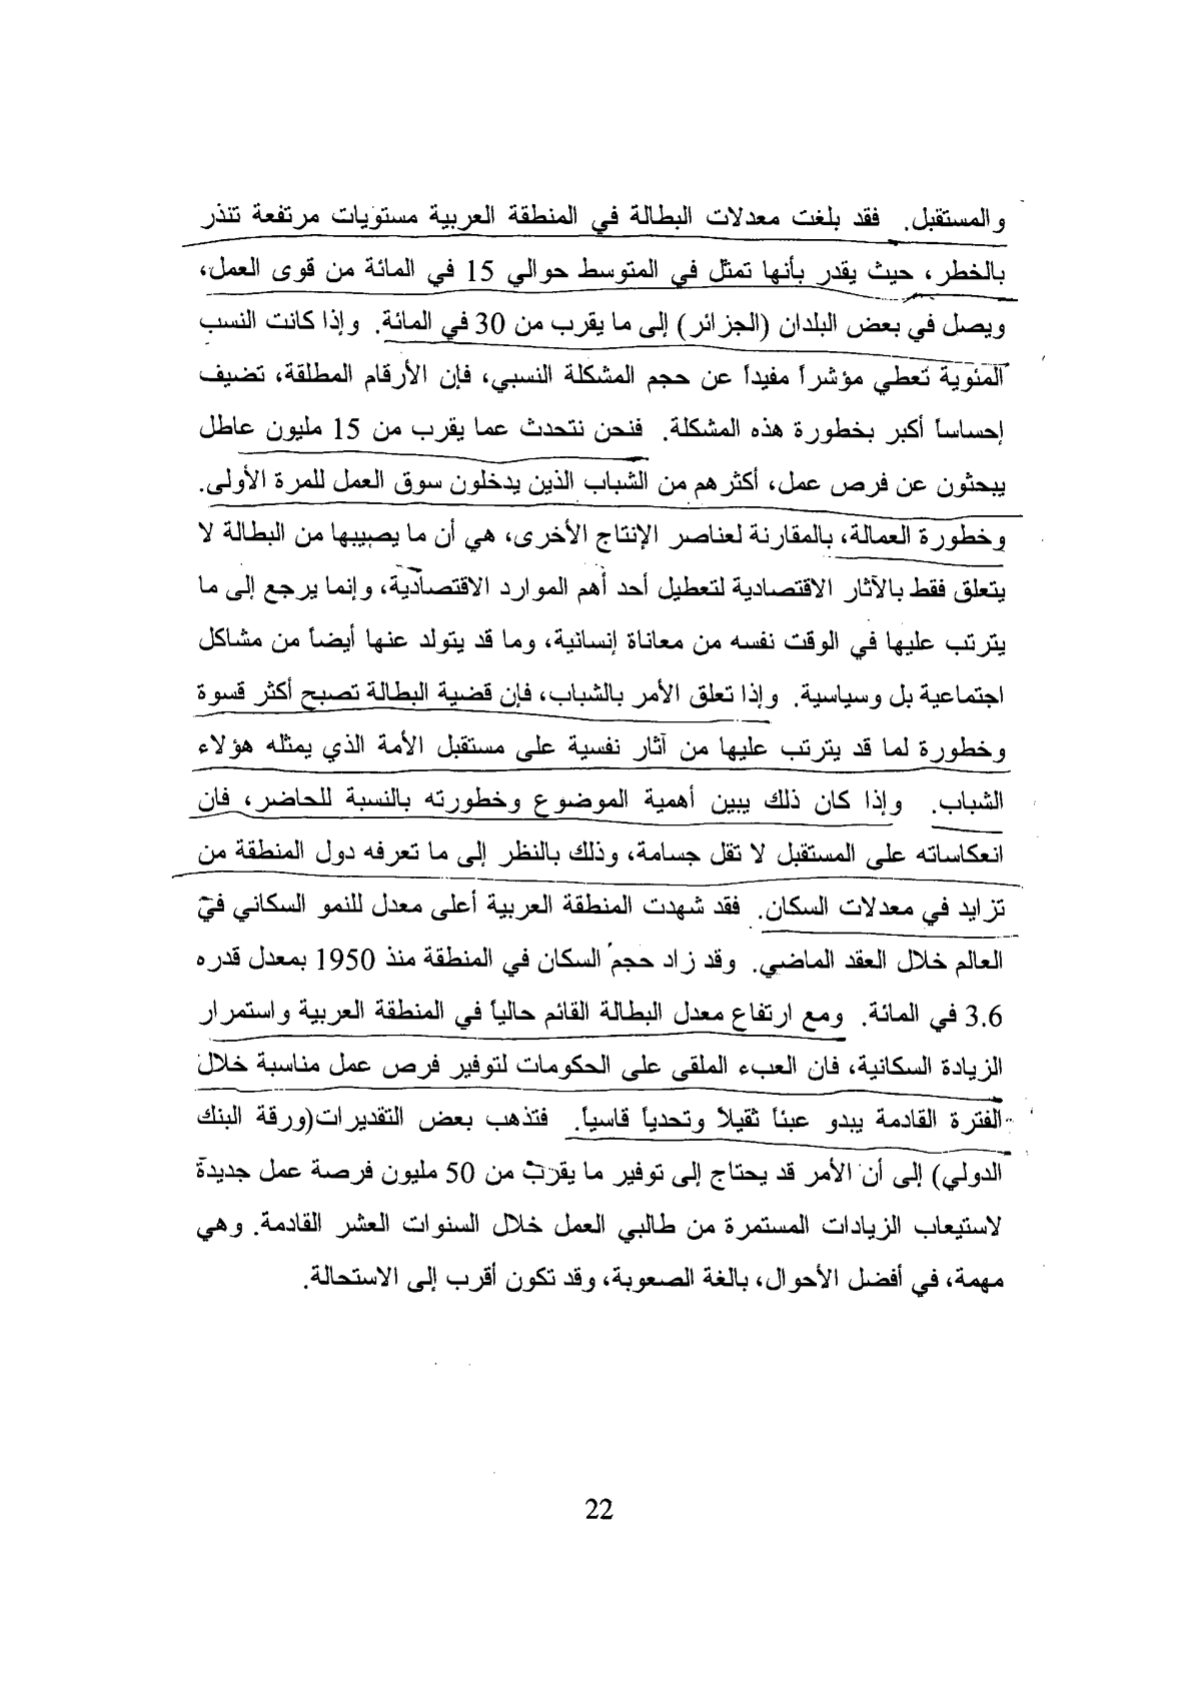 والمستقبل. فقد بلغت معدلات البطالة في المنطقة العربية مستويات مرتفعة تنذر
بالخطر، حيث يقدر بأنها تمثل في المتوسط حوالي 15 في المائة من قوى العمل،
ويصل في بعض البلدان (الجزائر) إلى ما يقرب من 30 في المائة. وإذا كانت النسب
المئوية تعطي مؤشراً مفيداً عن حجم المشكلة النسبي، فإن الأرقام المطلقة، تضيف
إحساساً أكبر بخطورة هذه المشكلة. فنحن نتحدث عما يقرب من 15 مليون عاطل
يبحثون عن فرص عمل، أكثرهم من الشباب الذين يدخلون سوق العمل للمرة الأولى.
وخطورة العمالة، بالمقارنة لعناصر الإنتاج الأخرى، هي أن ما يصيبها من البطالة لا
يتعلق فقط بالآثار الاقتصادية لتعطيل أحد أهم الموارد الاقتصادية، وإنما يرجع إلى ما
يترتب عليها في الوقت نفسه من معاناة إنسانية، وما قد يتولد عنها أيضاً من مشاكل
اجتماعية بل وسياسية. وإذا تعلق الأمر بالشباب، فإن قضية البطالة تصبح أكثر قسوة
وخطورة لما قد يترتب عليها من آثار نفسية على مستقبل الأمة الذي يمثله هؤلاء
الشباب. وإذا كان ذلك يبين أهمية الموضوع وخطورته بالنسبة للحاضر، فان
انعكاساته على المستقبل لا تقل جسامة، وذلك بالنظر إلى ما تعرفه دول المنطقة من
تزايد في معدلات السكان. فقد شهدت المنطقة العربية أعلى معدل للنمو السكاني في
العالم خلال العقد الماضي. وقد زاد حجم السكان في المنطقة منذ 1950 بمعدل قدره
3.6 في المائة. ومع ارتفاع معدل البطالة القائم حالياً في المنطقة العربية واستمرار
الزيادة السكانية، فان العبء الملقى على الحكومات لتوفير فرص عمل مناسبة خلال
الفترة القادمة يبدو عبئاً ثقيلاً وتحدياً قاسياً. فتذهب بعض التقديرات(ورقة البنك
الدولي) إلى أن الأمر قد يحتاج إلى توفير ما يقرب من 50 مليون فرصة عمل جديدة
لاستيعاب الزيادات المستمرة من طالبي العمل خلال السنوات العشر القادمة. وهي
مهمة، في أفضل الأحوال، بالغة الصعوبة، وقد تكون أقرب إلى الاستحالة.
22